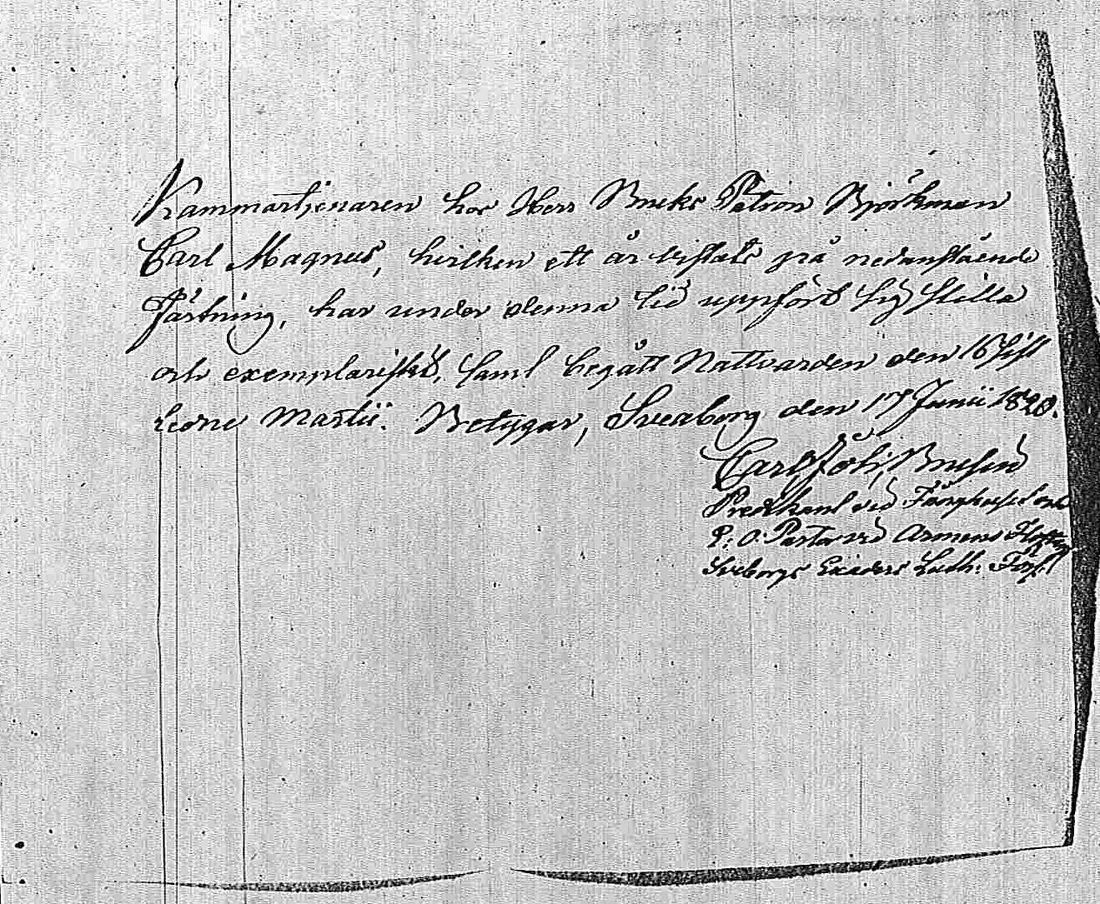 Kammartjenaren hos Herr Bruks Patron Björkman
Carl Magnus, hvilken ett år vistats på nedanstående
Fästning, har under denna tid uppfört sig stilla
och exemplariskt, samt begått Nattvarden den 16 sist
ledne Martii. Betygar, Sveaborg den 17 Junii 1820.
Carl Joh:
Predikant vid Fånghuset och
P: O: Pastor vid
Sveborgs Luth: Förs:l